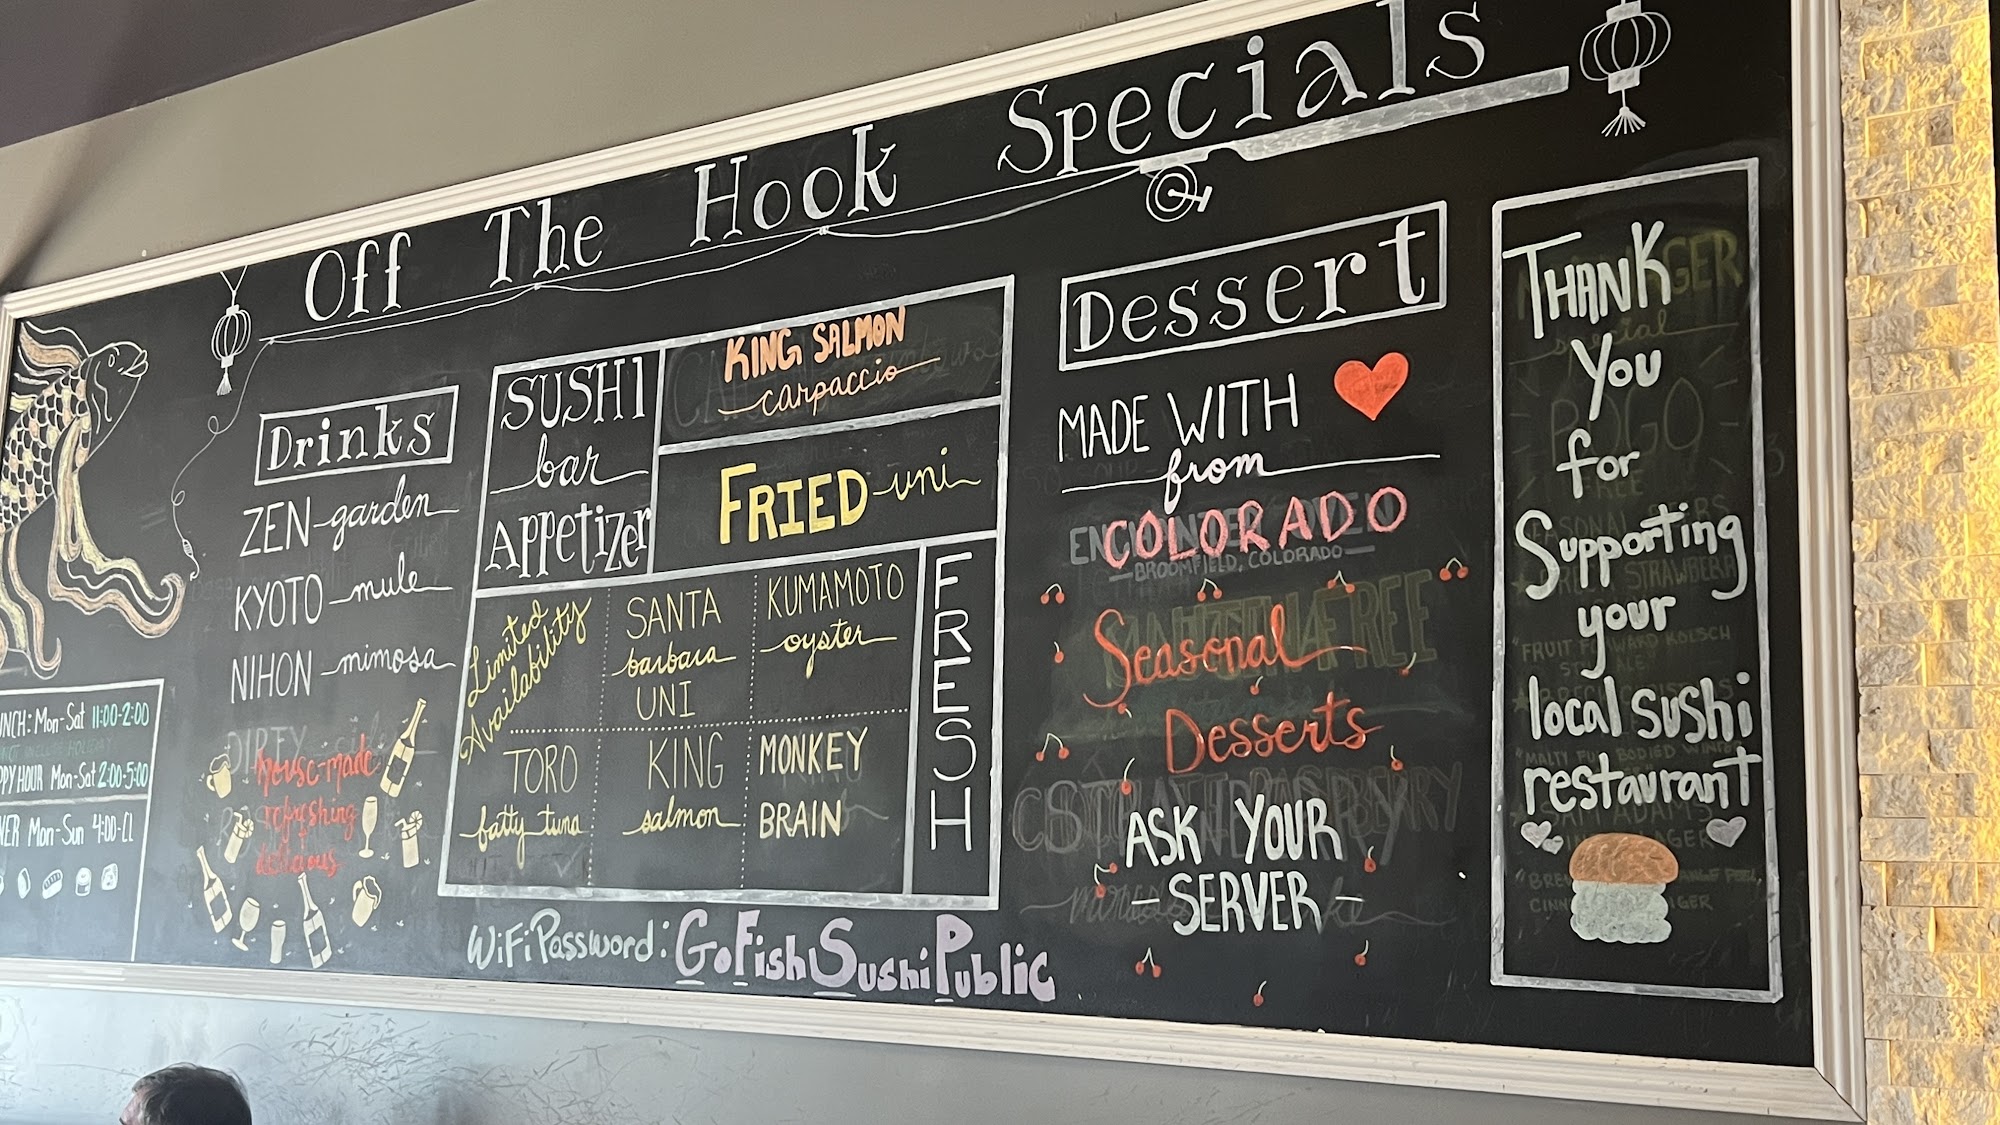 Off The Hook Specials
Drinks
ZEN garden
KYOTO mule
NIHON mimosa
house-made
refreshing
+
delicious
Mon-Sat 11:00-2:00
HOUR Mon-Sat 2:00-5:00
Mon-Sun 4:00-Cl
SUSHI
bar
APPetizer
KING SALMON
carpaccio
FRIED uni
Limited
Availability
SANTA
barbara
UNI
KUMAMOTO
oyster
TORO
fatty tuna
KING
salmon
MONKEY
BRAIN
FRESH
WiFi Password: GoFishSushiPublic
Dessert
MADE WITH
from
COLORADO
BROOMFIELD, COLORADO
Seasonal
Desserts
ASK YOUR
- SERVER -
THANK
You
for
Supporting
your
local sushi
restaurant